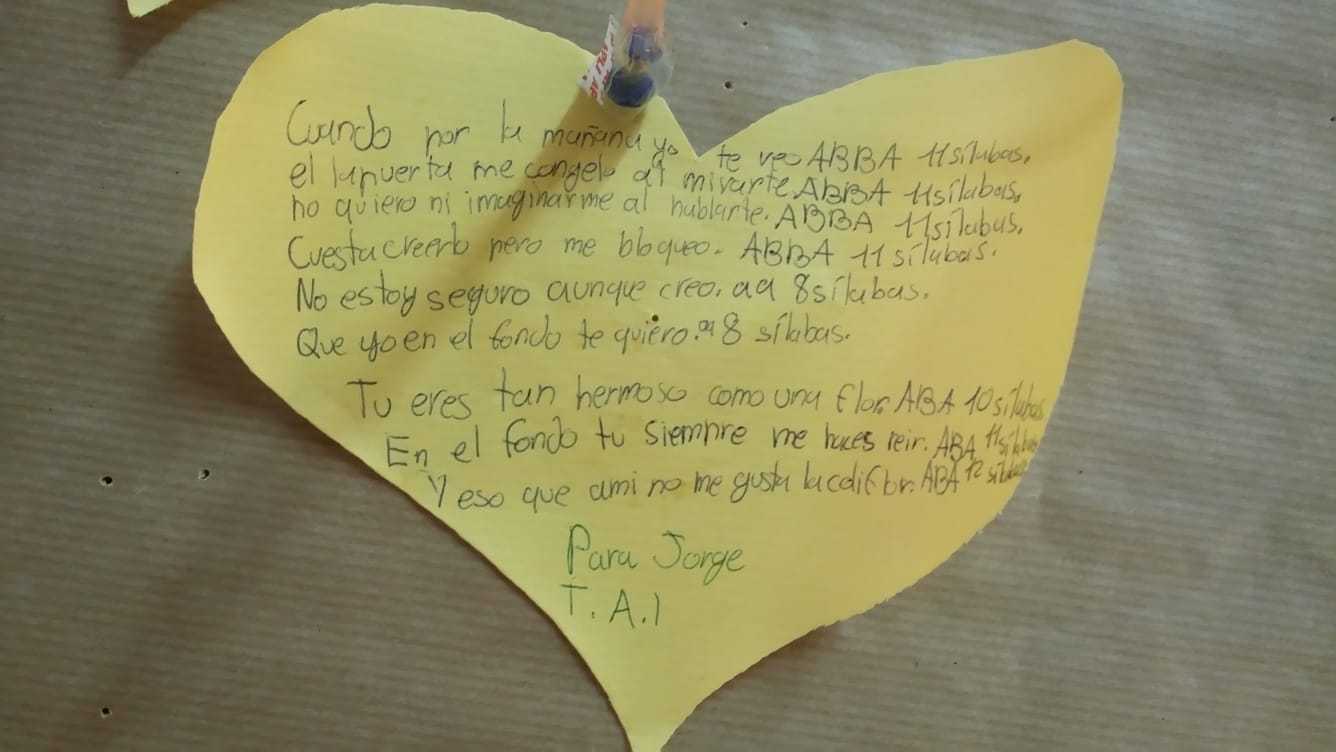 Cuando por la mañana yo te veo ABBA 11 sílabas.
el la puerta me congelo al mirarte. ABBA 11 sílabas.
no quiero ni imaginarme al hablarte. ABBA 11 sílabas.
Cuesta creerlo pero me bloqueo. ABBA 11 sílabas.
No estoy seguro aunque creo. aa 8 sílabas.
Que yo en el fondo te quiero. aa 8 sílabas.
Tu eres tan hermoso como una flor ABA 10 sílabas
En el fondo tu siempre me haces reir. ABA 11 sílabas
Y eso que ami no me gusta la ABA 12 sílabas
Para Jorge
T. A. I